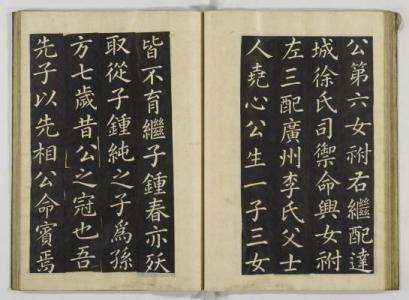 公第六女祔右繼配達
城徐氏司禦命興女祔
左三配廣州李氏父士
人堯心公生一子三女
皆不育繼子鍾春亦殀
取從子鍾純之子爲孫
方七歲昔公之冠也吾
先子以先相公命賓焉